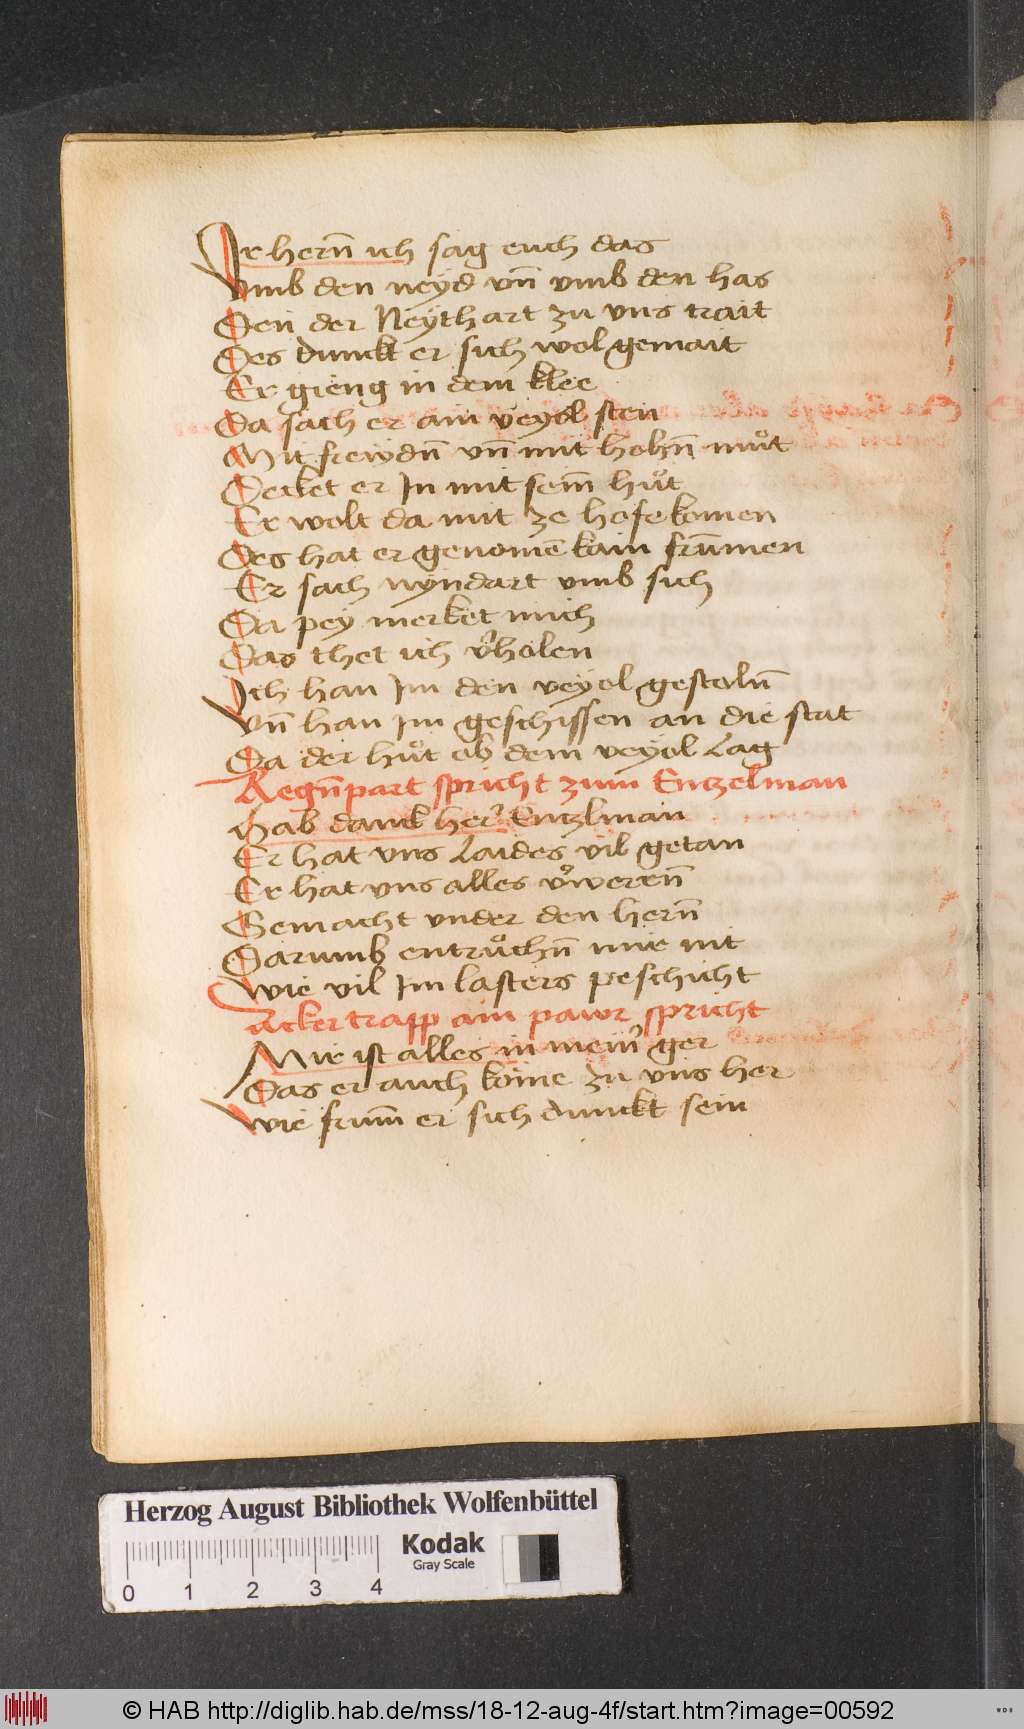 Ir hern̄ ich sag euch das
vmb den neyd vn̄ vmb den has
Den der Neythart zu vns trait
Des dunckt er sich wol gemait
Er gieng in dem klee
Da sach er ain veyol sten
Mit frewdn̄ vn̄ mit hohn̄ můt
Decket er Im mit seim̄ hůt
Er wolt da mit ze hofe komen
Des hat er genomē kain frūmen
Er sach nyndart vmb sich
Da pey merket mich
Das thet ich v̓holen
Ich han Im den veyol gestoln̄
Vn̄ han Im geschissen an die stat
Da der hůt ob dem veyol Lag
Regn̄part spricht zum Entzelman
Hab danck her̓ Entzlman
Er hat vns Laides vil getan
Er hat vns alles v̓werrn̄
Gemacht vnder den hern̄
Darumb entrůchn̄ mir nit
wie vil Im lasters peschicht
Ackertrapp ain pawr spricht
Mir ist alles in mein̓ ger
Das er auch köme zu vns her
wie frum̄ er sich dunckt sein
Herzog August Bibliothek Wolfenbüttel
Kodak
Gray Scale
0 1 2 3 4
© HAB http://diglib.hab.de/mss/18-12-aug-4f/start.htm?image=00592